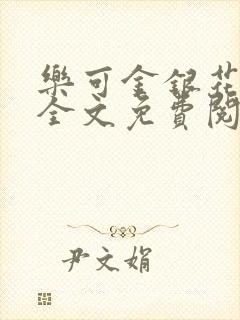 樂可金銀花
全文免費閱
尹文娟